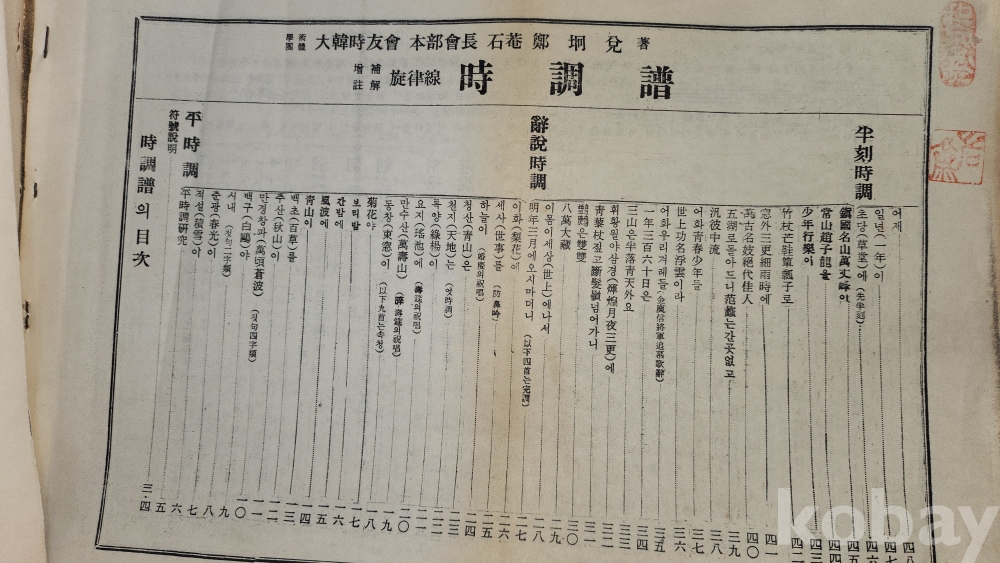 學團 術體 大韓時友會 本部會長 石菴 鄭坰兌 著
補解增註 旋律線 時調譜
時調譜의 目次
符號說明 三·四
平時調
(平時調硏究) 五
적설(積雪)이 六
춘광(春光)이 七
시내 (첫句二字類) 八
백구(白鷗)야 九
만경창파(萬頃蒼波) (첫句四字類) 一〇
추산(秋山)이 一一
백초(百草)를 一二
靑山이 一三
風波에 一四
간밤에 一五
보리밭 一六
菊花야 一七
동창(東窓)이 (以下九首는속청) 一八
만수산(萬壽山) (壽筵의祝唱) 一九
요지(瑤池)에 (壽筵의祝唱) 二〇
록양(綠楊)이 二一
천지(天地)는 (엇時調) 二二
청산(靑山)은 二三
하늘이 (婚慶의祝唱) 二四
세사(世事)를 二五
이화(梨花)에 二六
明年三月에오시마더니 (以下四首는完調) 二七
辭說時調
이몸이세상(世上)에나서 二八
八萬大藏 二九
鸚鵡은雙雙 三〇
靑藜杖짚고斷髮嶺넘어가니 三一
휘황월야삼경(輝煌月夜三更)에 三二
三山은半落靑天外요 三三
一年三百六十日은 三四
어화우리겨레들 (金庾信將軍追慕歌辭) 三五
世上功名浮雲이라 三六
어화靑春少年들 三七
汎彼中流 三八
五湖로돌아드니范蠡는간곳없고 三九
萬古名妓絕代佳人 四〇
忽外三更細雨時에 四一
竹杖芒鞋簞瓢子로 四二
少年行樂이 四三
常山趙子龍을 四四
鎭國名山萬丈峰이 四五
半刻時調
초당(草堂)에 (先半刻) 四六
일년(一年)이 四七
어제 四八
kobay